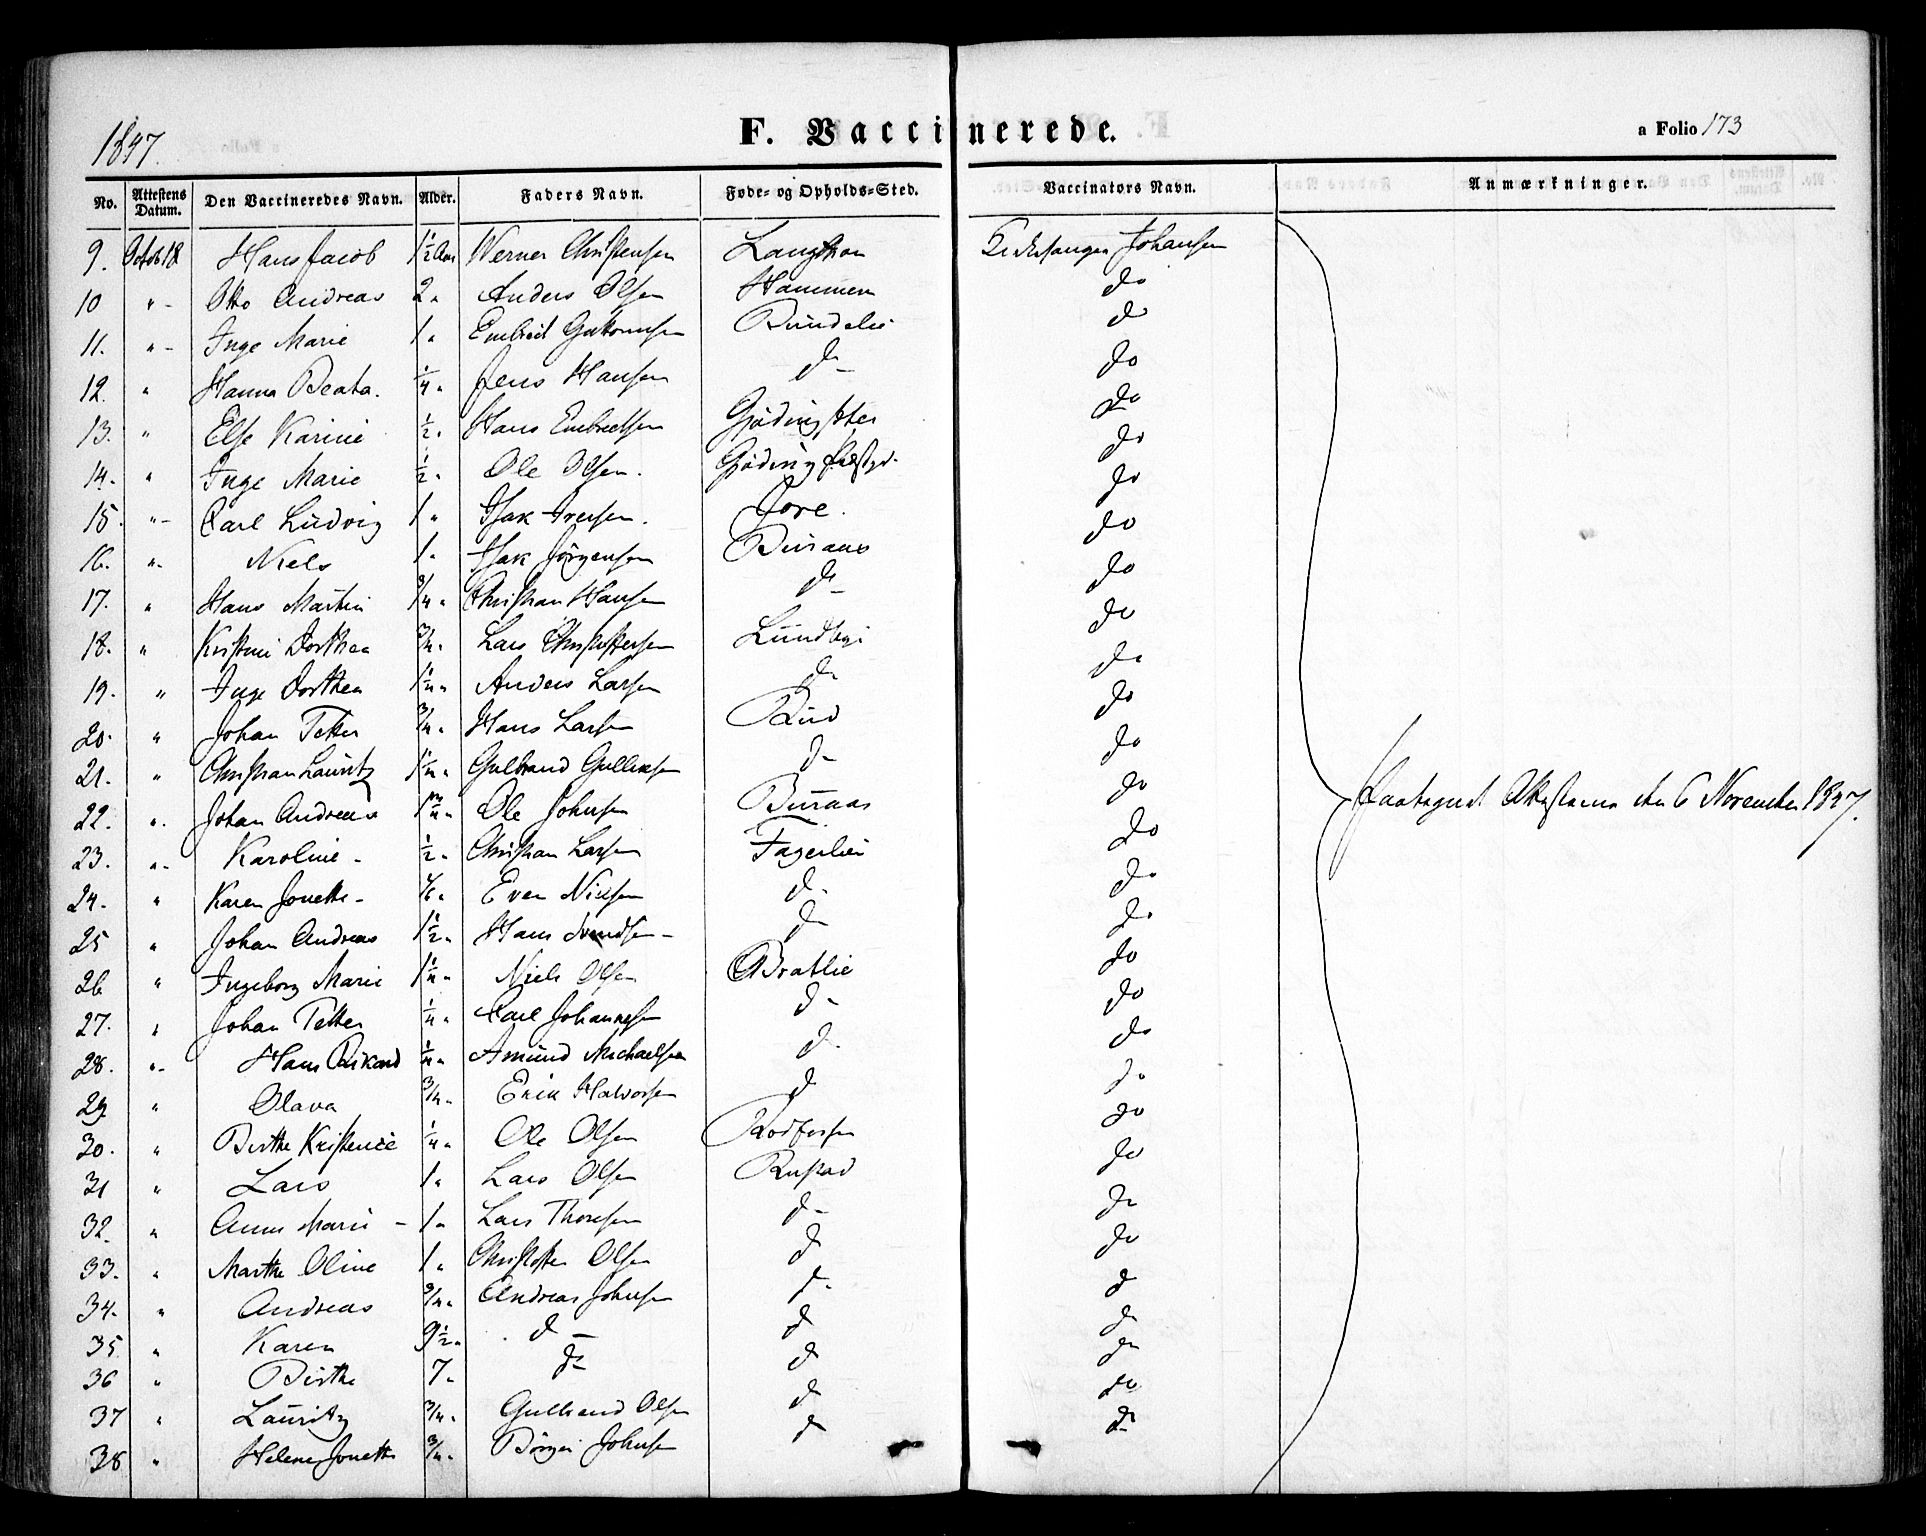 1847.
F. Vaccinerede.
a Folio 173
No. Attestens Datum. Den Vaccineredes Navn. Alder. Faders Navn. Føde- og Opholds-Sted. Vaccinators Navn. Anmærkninger.
9. Octob 18 Hans Jacob 1½ Aar Werner Christensen Johansen
10 "- Otto Andreas 2 " Anders Olsen Hammeren do
11. "- Inge Marie 1 " Embret Guttormsen do
12. " Hanna Beata. ¼ " Jens Hansen d- do
13. " Else Karine ½ " Hans Embretsen do
14. " Inge Marie ½ " Ole Olsen. do
15. "- Carl Ludvig 1 " Isak Iversen. do
16. "- Niels 1 " Isak Jørgensen Buraas do
17. " Hans Martin 3/4 " Christian Hansen d- do
18. " Kristine Dorthea 3/4 " Lars Christophersen Lundbye do
19. " Inge Dorthea 1¼ " Anders Larsen do do
20. " Johan Petter 3/4 " Hans Larsen Rud do
21. " Christian Lauritz 1¼ " Gulbrand Gulliksen d- do
22. ". Johan Andreas Ole Johnsen Buraas do
23. "- Karoline - ½ " Christian Larsen Fagerlien do
24. " Karen Jonette - Even Nielsen d- do
25 " Johan Andreas 1½ " Hans Svendsen - d- do
26 " Ingeborg Marie 1¼ " Niels Olsen Bratlie do
27. " Johan Petter ¼ " Carl Johannesen d- do
28. "- Hans Rikard ¼ " Amund Michaelsen d- do
29 " Olava 3/4 " Erik Halvorsen d do
30. " Birthe Kristence ¼ " Ole Olsen Kodfossen do
31 " Lars 1 " Lars Olsen Rustad do
32. " Anne Marie - 1 " Lars Thoresen d- do
33. " Marthe Oline 1 " Christoffer Olsen d do
34. " Andreas 3/4 " Andreas Johnsen d- d
35 " Karen 9½ " d - d do
36 " Birthe 7 " do d do
37 " Lauritz 3/4 " Gulbrand Olsen d do
38 " Helene Jonette 3/4 " Børger Johnsen d do
Attesterne den 6 November 1847.